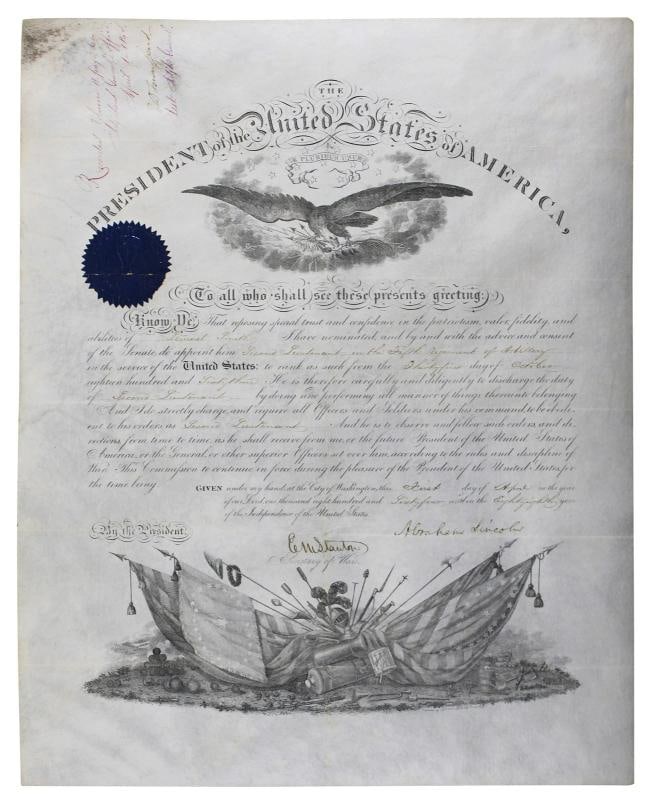 THE
PRESIDENT of the United States of AMERICA,
E PLURIBUS UNUM
To all who shall see these presents greeting:
Know Ye, That reposing special trust and confidence in the patriotism, valor, fidelity, and
abilities of Smith I have nominated, and by and with the advice and consent
of the Senate, do appoint him Second Lieutenant in the Fifth Regiment of Artillery
in the service of the United States: to rank as such from the day of October
eighteen hundred and Sixty three He is therefore carefully and diligently to discharge the duty
of Second Lieutenant by doing and performing all manner of things thereunto belonging
And I do strictly charge, and require all Officers and Soldiers under his command, to be obedi-
ent to his orders as Second Lieutenant And he is to observe and follow such orders, and di-
rections, from time to time, as he shall receive from me, or the future President of the United States of
America, or the General, or other superior Officers set over him, according to the rules and discipline of
War. This Commission to continue in force during the pleasure of the President of the United States, for
the time being.
GIVEN under my hand, at the City of Washington, this First day of April in the year
of our Lord, one thousand eight hundred and Sixty four and in the Eighty eighth year
of the Independence of the United States.
By the President.
Abraham Lincoln
E M Stanton
Secretary of War.